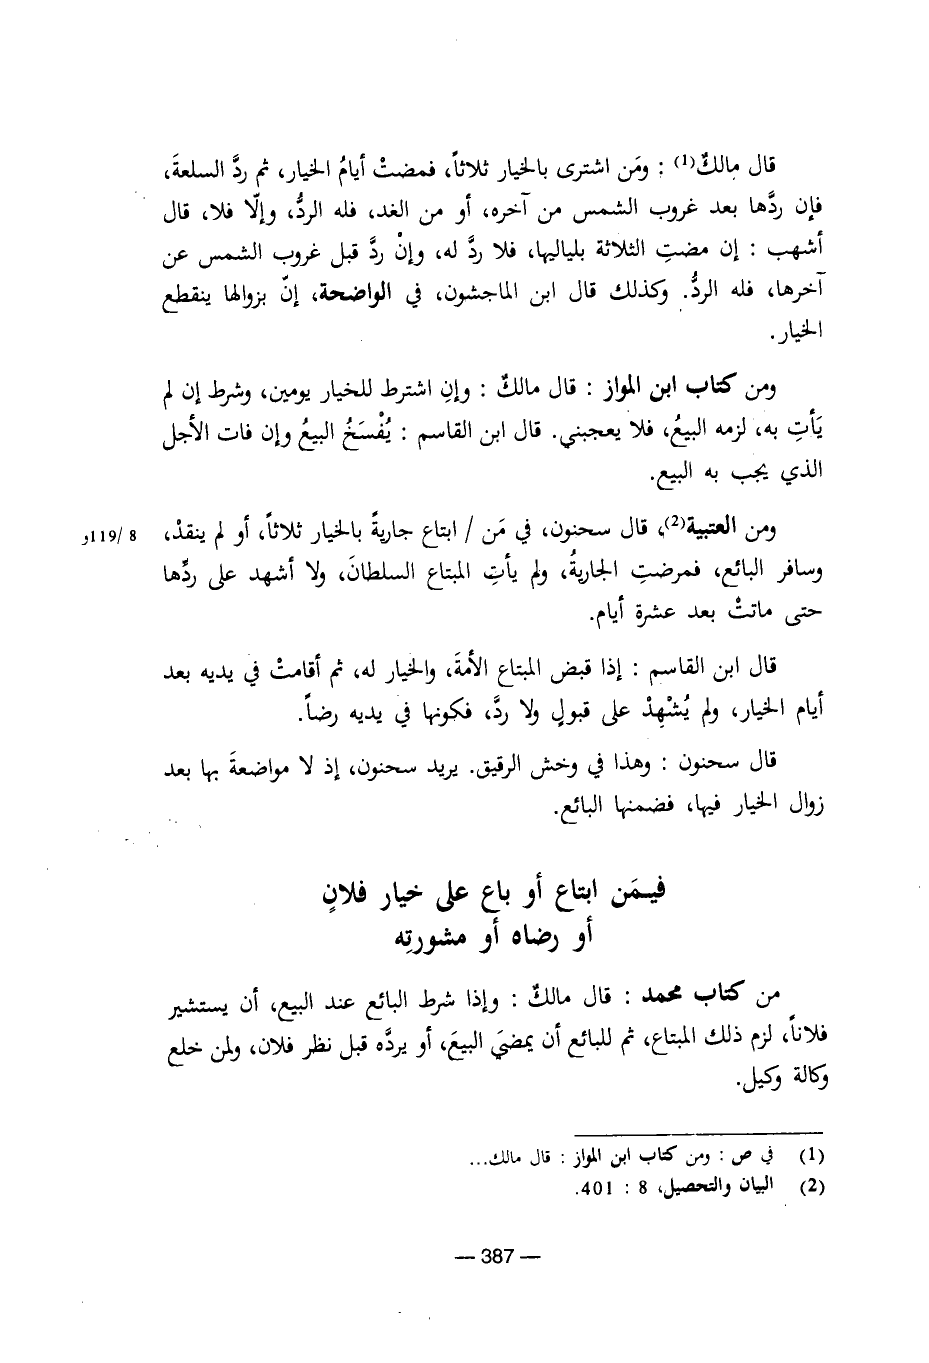 قال مالكٌ(1) : ومَن اشترى بالخيار ثلاثاً، فمضتْ أيامُ الخيار، ثم ردَّ السلعةَ،
فإن ردَّها بعد غروب الشمس من آخره، أو من الغد، فله الردُّ، وإلّا فلا، قال
أشهب : إن مضتِ الثلاثة بلياليها، فلا ردَّ له، وإنْ ردَّ قبل غروب الشمس عن
آخرها، فله الردُّ. وكذلك قال ابن الماجشون، في الواضحة، إنّ بزوالها ينقطع
الخيار.
ومن كتاب ابن المواز : قال مالكٌ : وإنِ اشترط للخيار يومين، وشرط إن لم
يَأتِ به، لزمه البيعُ، فلا يعجبني. قال ابن القاسم : يُفْسَخُ البيعُ وإن فات الأجل
الذي يجب به البيع.
ومن العتبية(2)، قال سحنون، في مَن / ابتاع جاريةً بالخيار ثلاثاً، أو لم ينقدْ، 8 /119و
وسافر البائع، فمرضتِ الجاريةُ، ولم يأتِ المبتاع السلطانَ، ولا أشهد على ردِّها
حتى ماتتْ بعد عشرة أيام.
قال ابن القاسم : إذا قبض المبتاع الأمةَ، والخيار له، ثم أقامتْ في يديه بعد
أيام الخيار، ولم يُشْهِدْ على قبولٍ ولا ردَّ، فكونها في يديه رضاً.
قال سحنون : وهذا في وخش الرقيق. يريد سحنون، إذ لا مواضعةَ بها بعد
زوال الخيار فيها، فضمنها البائع.
فيـمَن ابتاع أو باع على خيار فلانٍ
أو رضاه أو مشورتِه
من كتاب محمد : قال مالكٌ : وإذا شرط البائع عند البيع، أن يستشير
فلاناً، لزم ذلك المبتاع، ثم للبائع أن يمضيَ البيعَ، أو يردَّه قبل نظر فلان، ولمن خلع
وكالة وكيل.
(1) في ص : ومن كتاب ابن المواز : قال مالك...
(2) البيان والتحصيل، 8 : 401.
— 387 —